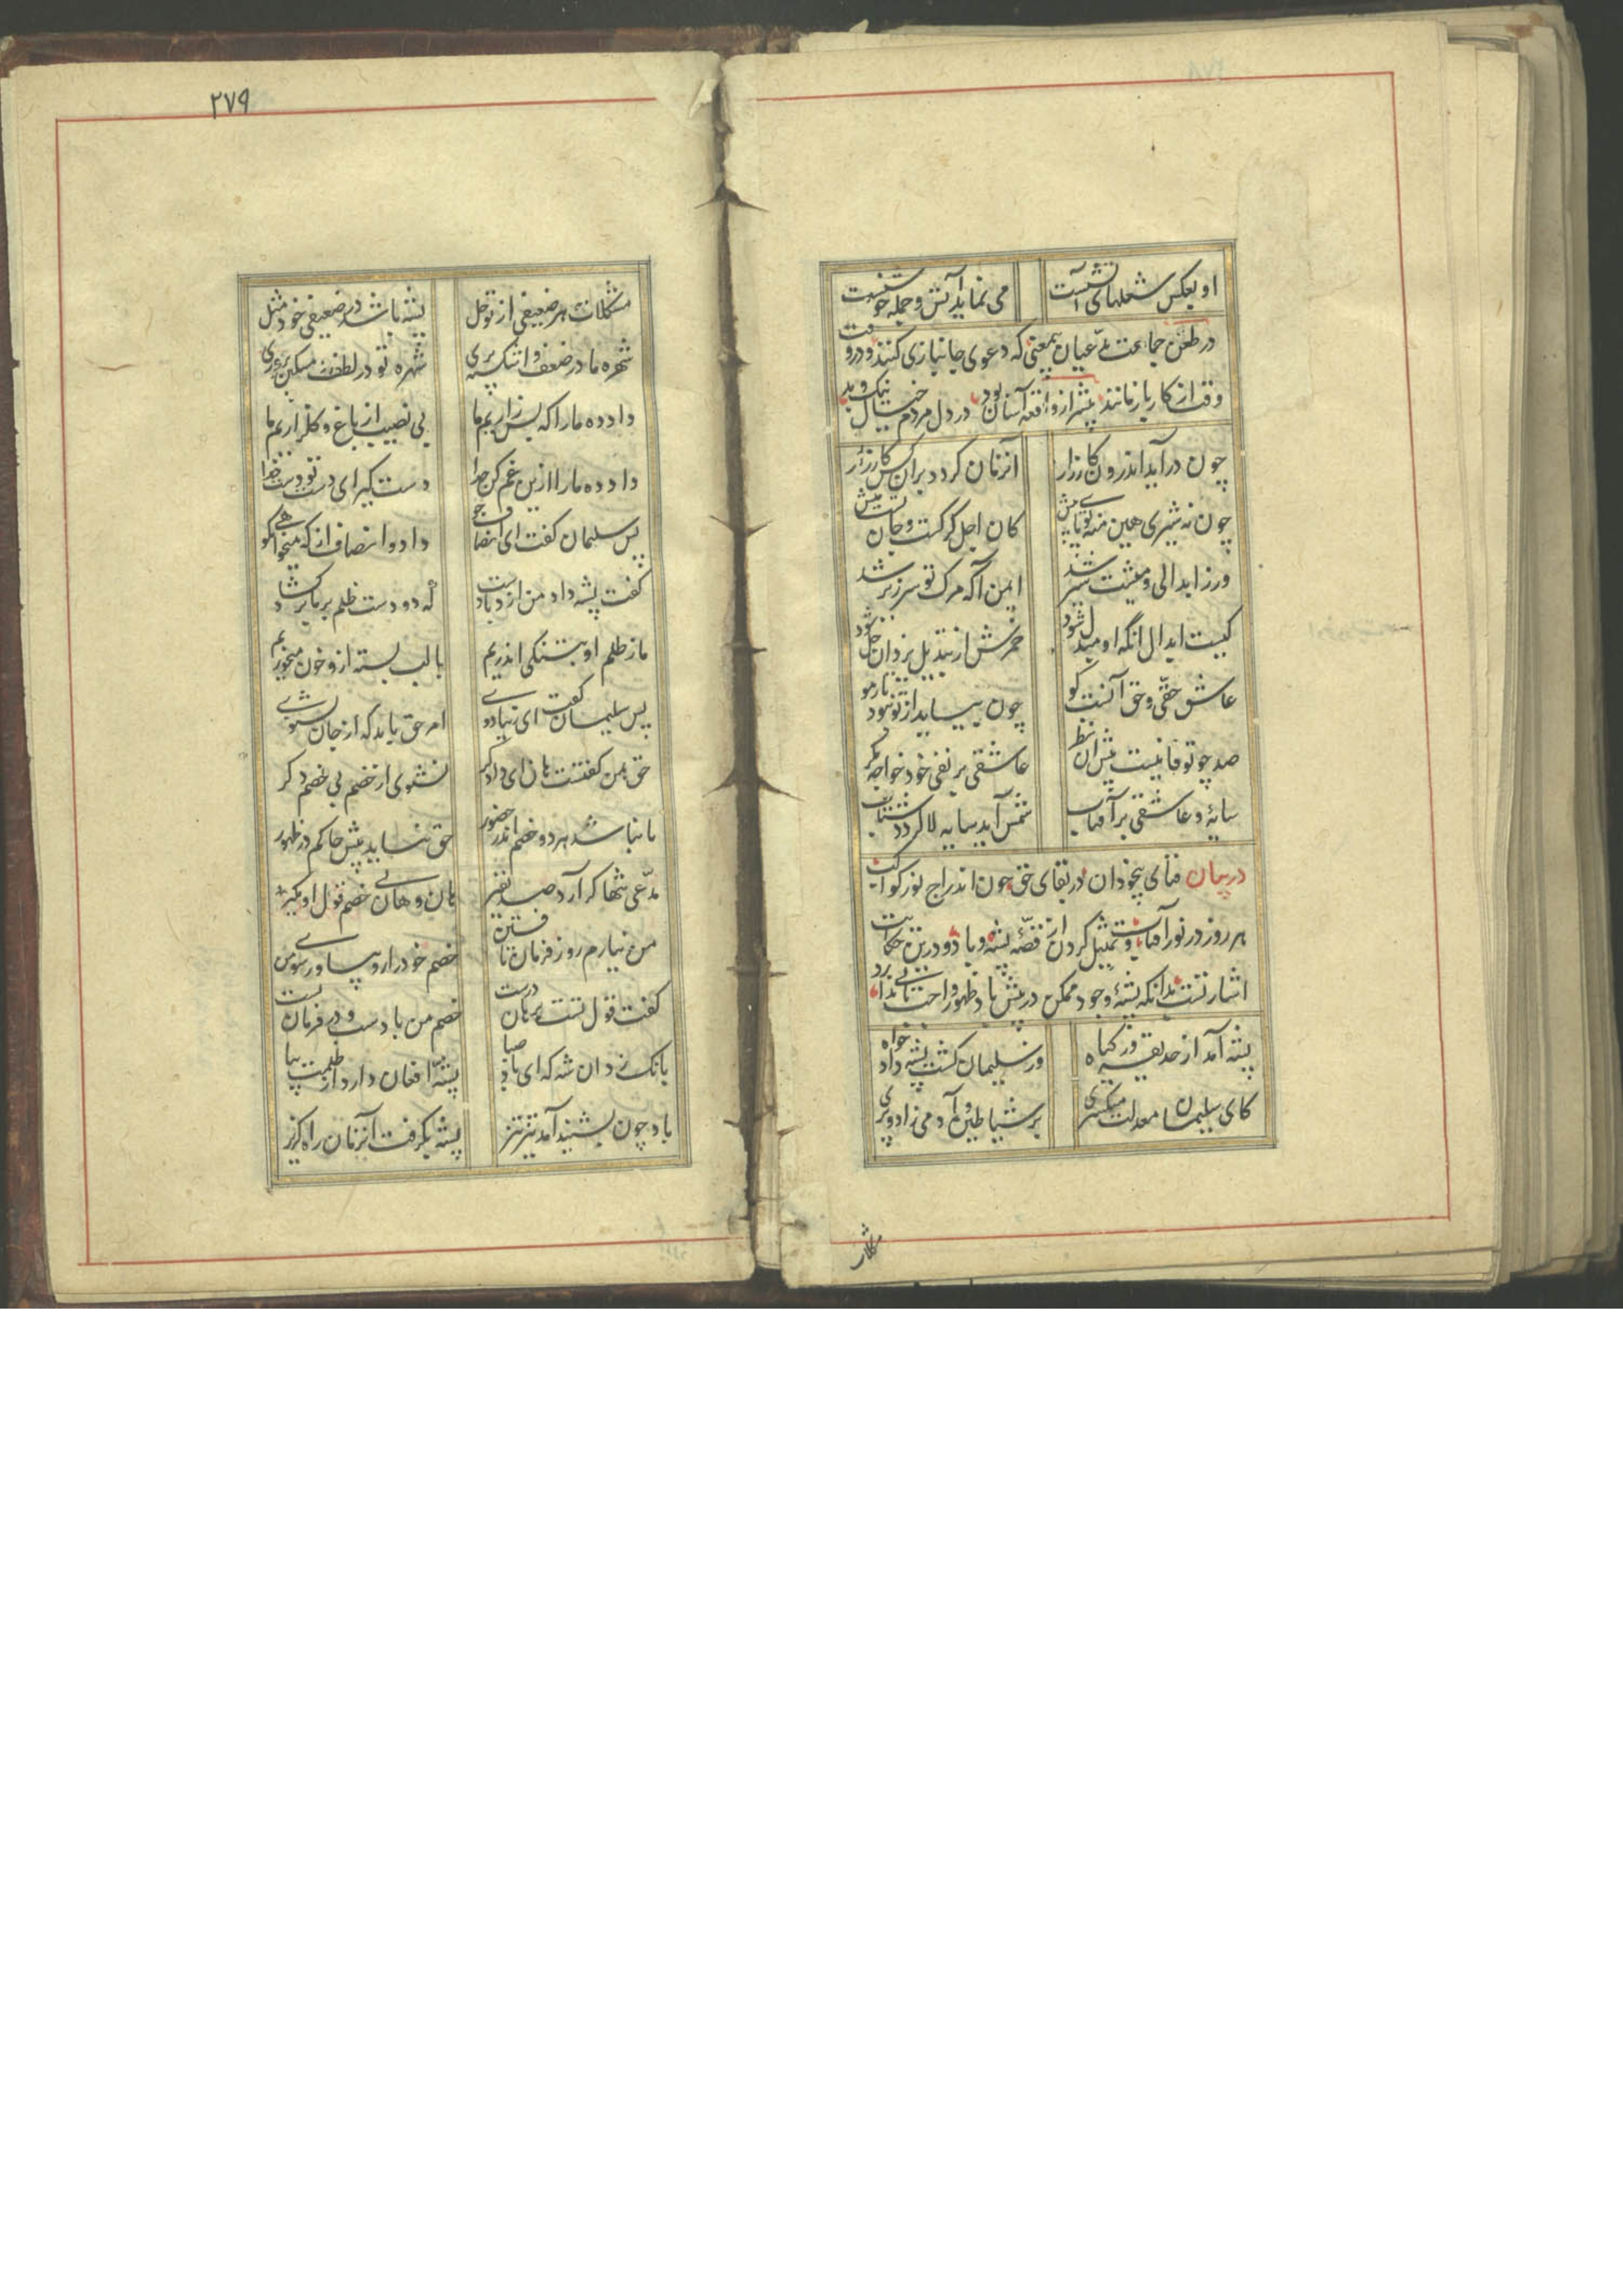 او بعکس شعلهای آتشست می نماید آتش و جمله خوشست
در طعن جماعت مدّعیان بیمعنی که دعوی جانبازی کنند و در وقت
وقت از کار باز مانند پیشتر از واقعه آسان بود در دل مردم خیال نیک و بد
چون درآید اندرون کارزار آنزمان کردد بران کس کارزار
چون نه شیری هین منه تو پای پیش کان اجل کرکست و جان تست میش
ور ز ابدالی و میشت شیر شد ایمن آ که مرک تو سرزیر شد
کیست ابدال آنکه او مبدل شود خمرش از تبدیل یزدان خل شود
عاشق حقّی و حق آنست کو چون بیاید از تو نبود تار مو
صد چو تو فانیست پیش آن نظر عاشقی بر نفی خود خواجه مکر
سایهٔ و عاشقی بر آفتاب شمس آید سایه لا کردد شتاب
در بیان فنای بیخودان در بقای حق چون اندراج نور کواکب
هر روز در نور آفتاب و تمثیل کردن از قصّهٔ پشه و باد و درین حکایت
اشارتست بدانکه پشهٔ وجود ممکن در پیش باد ظهور واجب تابی ندارد
پشه آمد از حدیقه وز کیاه وز سلیمان کشت پشه دادخواه
کای سلیمان معدلت میکستری بر شیاطین و آدمی زاد و پری
مشکلات
۲۷۹
مشکلات هر ضعیفی از تو حل پشه باشد در ضعیفی خود مثل
شهره ما در ضعف و اشکسته پری شهره تو در لطف و مسکین پروری
داد ده ما را که بس زاریم ما بی نصیب از باغ و کلزاریم ما
داد ده ما را ازین غم کن جدا دست کیر ای دست تو دست خدا
پس سلیمان کفت ای انصاف جو داد و انصاف از که میخواهی بکو
کفت پشه داد من از دست باد که دو دست ظلم بر ما بر کشاد
ما ز ظلم او بتنکی اندریم با لب بسته ازو خون میخوریم
پس سلیمان کفت ای زیبا دوی امر حق باید که از جان بشنوی
حق بمن کفتست هان ای دادکر نشنوی از خصم بی خصم دکر
تا نباشد هر دو خصم اندر حضور حق نیاید پیش حاکم در ظهور
مدّعی تنها کر آرد صد نفیر هان و هان بی خصم قول او مکیر
من نیارم رو ز فرمان تافتن خصم خود را رو بیاور سوی من
کفت قول تست برهان درست خصم من بادست و در فرمان تست
بانک زد آن شه که ای باد صبا پشه افغان دارد از ظلمت بیا
باد چون بشنید آمد تیز تیز پشه بکرفت آنزمان راه کریز